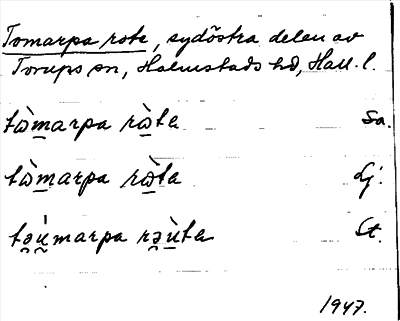 Tomarpa rote, sydöstra delen av
Torups sn, Halmstads hd, Hall. l.
tὼm̲arpa rὼ̲ta Sa.
tὼm̲arpa rὼ̲ta Lj.
tə̯ú̲marpa rə̯ù̲ta St.
1947.